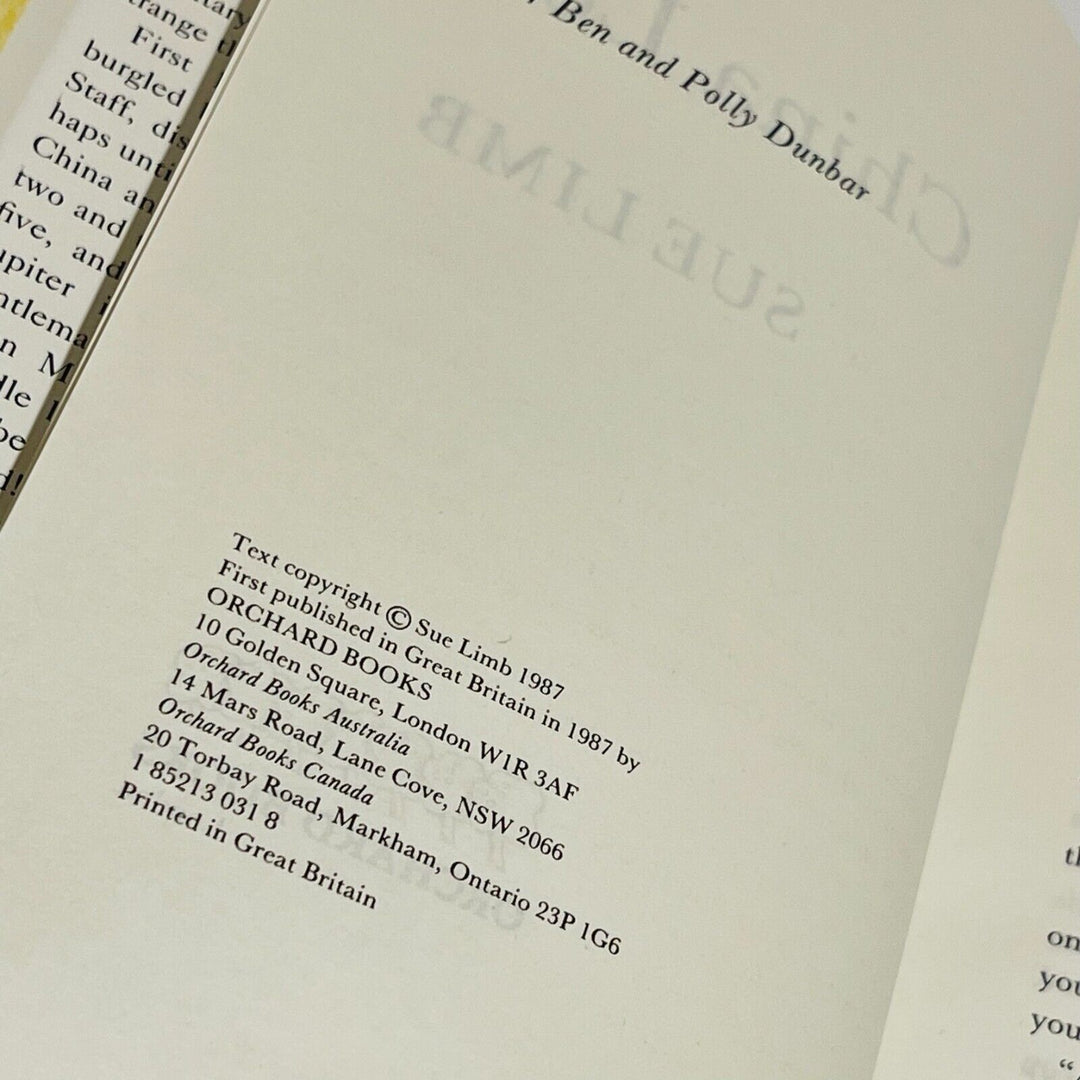 tary
trange
First
burgled
Staff, dis
haps unti
China an
two and
five, and
upiter i
ntlema
n M
dle l
be
d!
Ben and Polly Dunbar
China
SUE LIMB
Text copyright © Sue Limb 1987
First published in Great Britain in 1987 by
ORCHARD BOOKS
10 Golden Square, London W1R 3AF
Orchard Books Australia
14 Mars Road, Lane Cove, NSW 2066
Orchard Books Canada
20 Torbay Road, Markham, Ontario 23P 1G6
1 85213 031 8
Printed in Great Britain
on
you
you